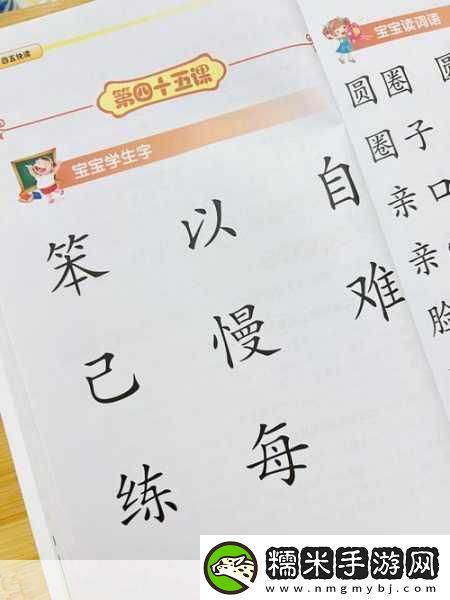 四五快读
第四十五课
宝宝学生字
笨 以 自
己 慢 难
练 每
宝宝读词语
圆圈 圆
圈子
亲口
亲
脸
糯米手游网
www.nmgmybj.com